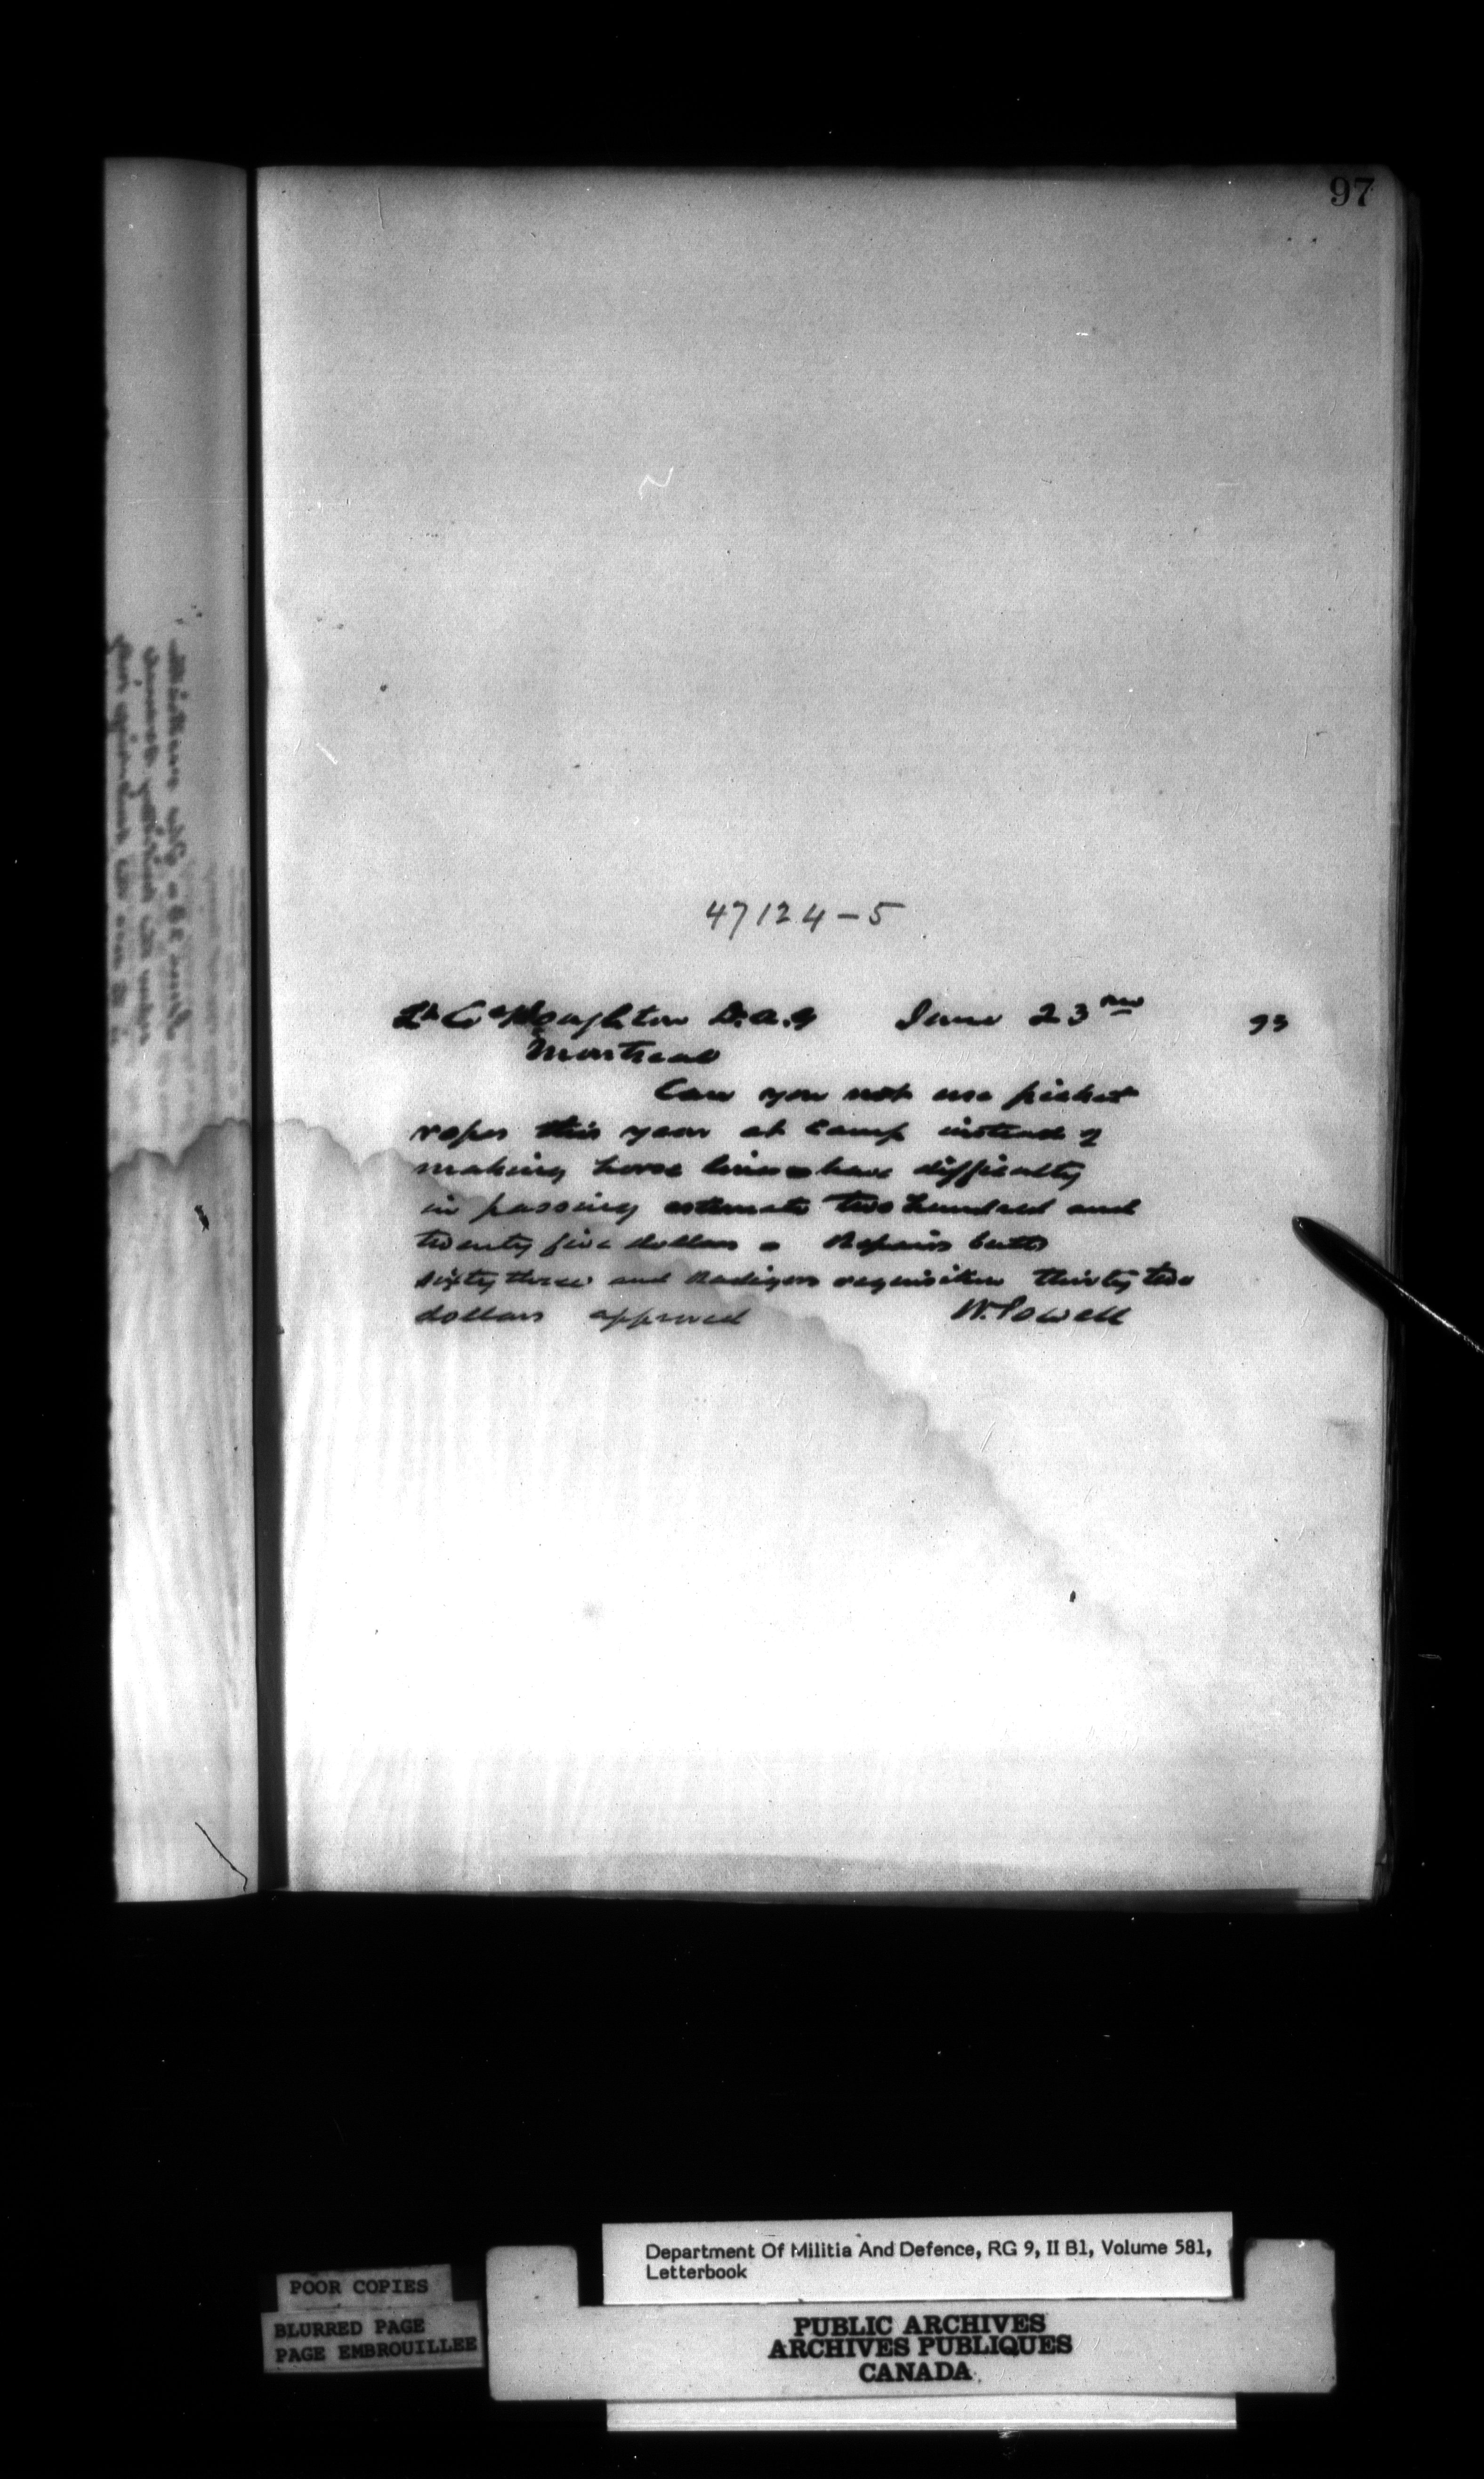 97
47124-5
Lt Col Houghton D.A.G June 23rd 93
Montreal
Can you not use picket
ropes this year at Camp instead of
making horse lines have difficulty
in passing estimate two hundred and
twenty five dollars - Repairs butts
sixty three and Radigers requisition thirty two
dollars approved W. Powell
Department Of Militia And Defence, RG 9, II B1, Volume 581,
Letterbook
POOR COPIES
BLURRED PAGE
PAGE EMBROUILLEE
PUBLIC ARCHIVES
ARCHIVES PUBLIQUES
CANADA